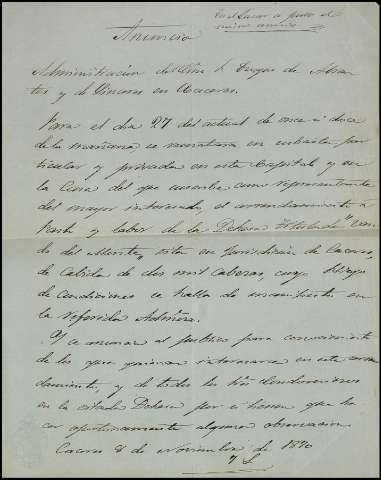 En el Lunes a puro el
mismo anuncio
Anuncio
Administración del Excmo Sr Duque de Abran
tes y de Linares en Cáceres.
Para el dia 27 del actual de once á doce
de la mañana se rematará en subasta par
ticular y privada en esta Capital y en
la Casa del que suscribe como representante
del mayor interesado, el arrendamiento á
pasto y labor de la Dehesa
do del Monte, sita en Jurisdicción de Cáceres,
de Cabida de dos mil cabezas, cuyo Pliego
de Condiciones se halla de manifiesto en
la referida Admón.
Y se anuncia al publico para conocimiento
de los que quieran interesarse en este arren
damiento, y de todos los Sres Condominos
en la citada Dehesa por si tienen que ha
cer oportunamente alguna observacion
Caceres 8 de Noviembre de 1890